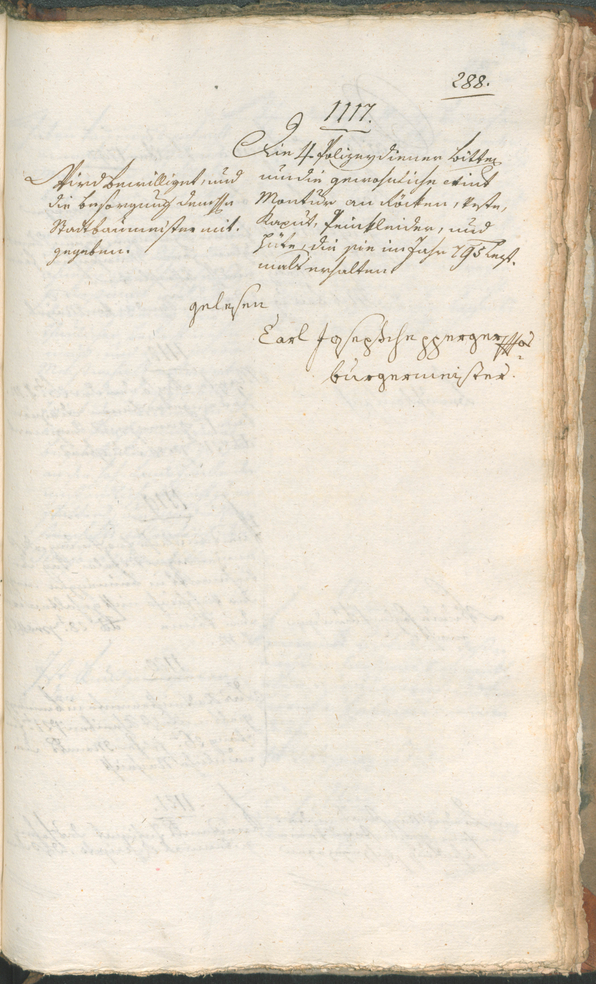 288.
1117.
Die 4 Polizeydiener bitten
um die gewohnliche
Montur an Röcken, Weste,
Kaput, Beinkleider, und
Hüte, die sie im Jahr 795 lezt-
mals erhalten
Wird bewilliget, und
die besorgung dem H
Stadtbaumeister mit-
gegeben.
gelesen
Carl Joseph
burgermeister.